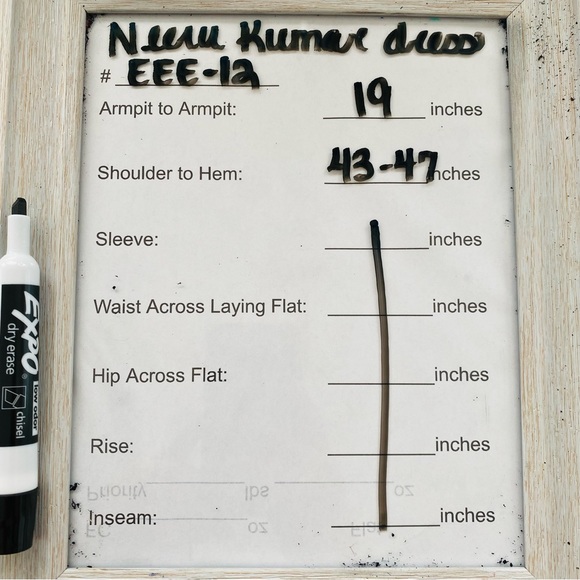 Neeru Kumar dress
# EEE-12
Armpit to Armpit: 19 inches
Shoulder to Hem: 43-47 inches
Sleeve: inches
Waist Across Laying Flat: inches
Hip Across Flat: inches
Rise: inches
Priority lbs oz
Inseam: inches
FC oz
EXPO
low odor
dry erase
chisel